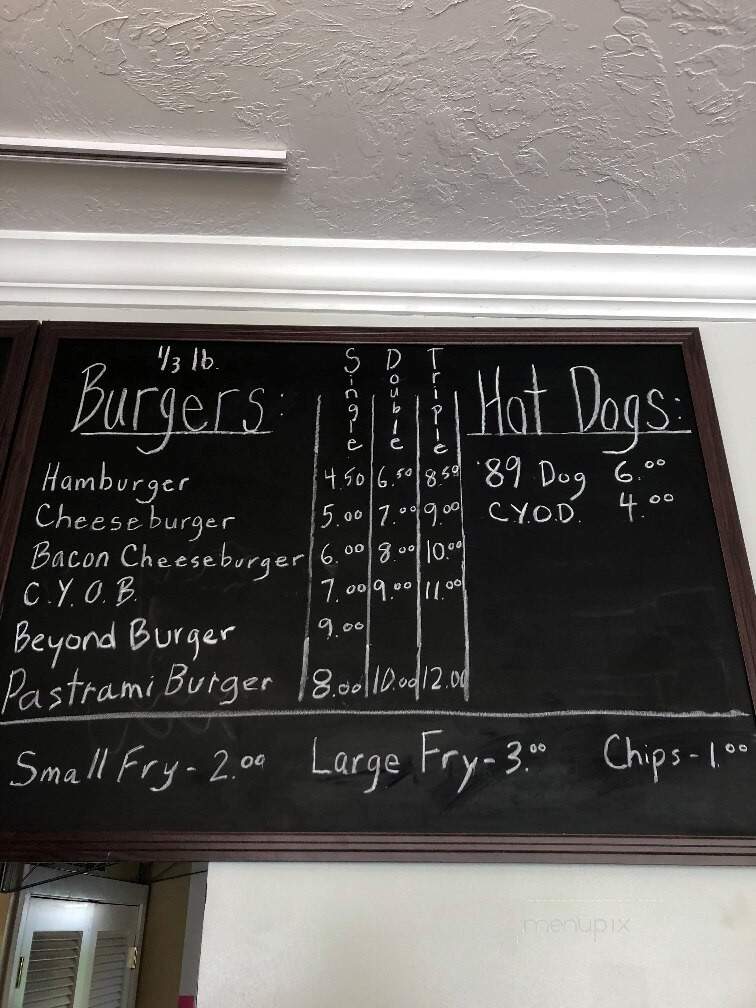 1/3 lb.
Burgers:
Single Double Triple
Hamburger 4.50 6.50 8.50
Cheeseburger 5.00 7.00 9.00
Bacon Cheeseburger 6.00 8.00 10.00
C.Y.O.B. 7.00 9.00 11.00
Beyond Burger 9.00
Pastrami Burger 8.00 10.00 12.00
Hot Dogs:
'89 Dog 6.00
C.Y.O.D. 4.00
Small Fry - 2.00 Large Fry - 3.00 Chips - 1.00
menupix